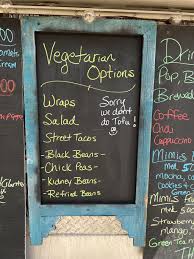 Vegetarian
Options
Wraps
Salad
Street Tacos
- Black Beans -
- Chick Peas -
- Kidney Beans -
- Refried Beans -
Sorry
we don't
do Tofu!
Pop, B
Brewed
Coffee
Chai
Cappuccino
Mimis
med 5.00
mocha,
cookies
Mimis
med. 500
Strawberry
mango,
Green Tea
Cream